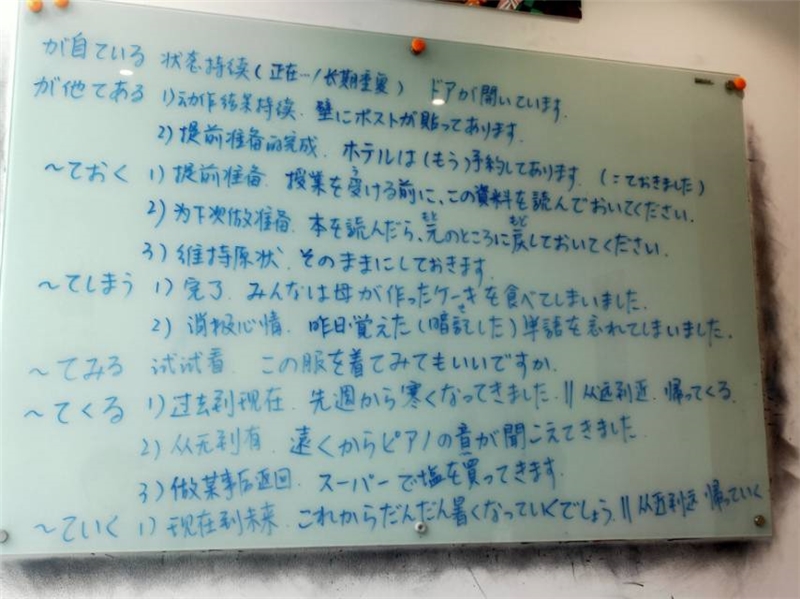 が自ている 状态持续(正在…/长期重复) ドアが開いています.
が他てある 1)动作结果持续. 壁にポストが貼ってあります.
2)提前准备的完成. ホテルは(もう)予約してあります. (=ておきました)
～ておく 1)提前准备. 授業を受ける前に、この資料を読んでおいてください.
2)为下次做准备. 本を読んだら、元のところに戻しておいてください.
3)维持原状. そのままにしておきます.
～てしまう 1)完了. みんなは母が作ったケーキを食べてしまいました.
2)消极心情. 昨日覚えた(暗記した)単語を忘れてしまいました.
～てみる 试试看. この服を着てみてもいいですか.
～てくる 1)过去到现在. 先週から寒くなってきました. || 从远到近. 帰ってくる.
2)从无到有. 遠くからピアノの音が聞こえてきました.
3)做某事后返回. スーパーで塩を買ってきます.
～ていく 1)现在到未来. これからだんだん暑くなっていくでしょう. || 从近到远 帰っていく